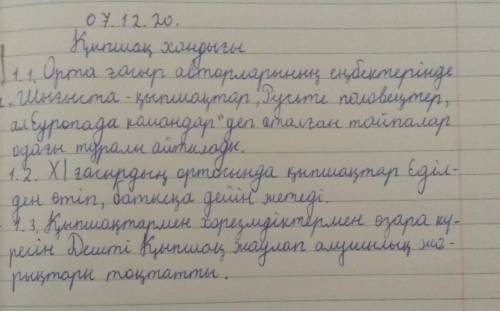 07.12.20.
Қыпшақ хандығы
1.1. Орта ғасыр авторларының еңбектерінде
"Шығыста - қыпшақтар, Русьте половецтер,
ал Еуропада командар" деп аталған тайпалар
одағы туралы айтылады.
1.2. XI ғасырдың ортасында қыпшақтар Еділ-
ден өтіп, батысқа дейін жетеді.
1.3. Қыпшақтармен хорезмдіктермен өзара кү-
ресін Дешті Қыпшақ жаулап алушылық жо-
рықтары тоқтатты.